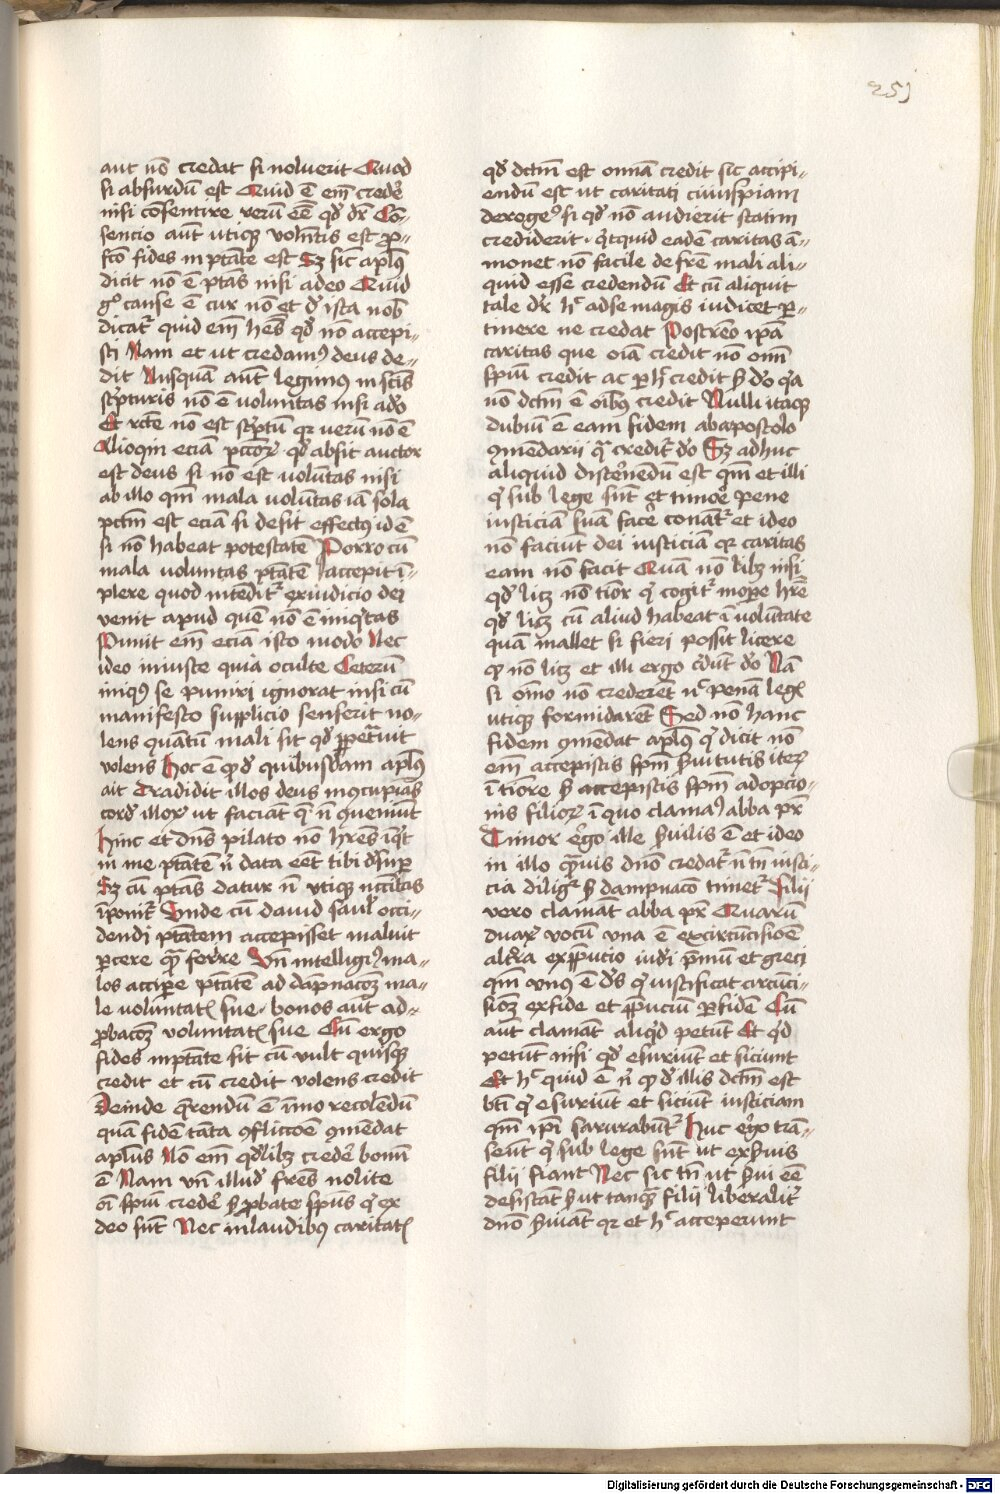 251
aut nō credat si noluerit Quod
si absurdū est Quid ē em̄ crede᷑
nisi cōsentire verū eē qd̕ dr̄ Cō-
sencio aut̄ utiqꝫ volētis est p̄o-
fcō fides in ptāte est Sꝫ sic apl̄us
dicit nō ē ptās nisi a deo Quid
gͦ cause ē cur nō et d̕ ista nob̄
dicat᷑ quid em̄ hēs qd̕ nō accepi-
sti Nam et ut credamꝰ deus de-
dit Nusquā aut̄ legimꝰ in sc̄is
sc̄pturis nō ē volūntas nisi a dō
Et rc̄te nō est sc̄ptū qr verū nō ē
Alioqin eciā pcc̄oꝝ qd̕ absit auctor
est deus si nō est volūtas nisi
ab illo qm̄ mala volūtas iā sola
pctm̄ est eciā si desit effectꝰ id ē
si nō habeat potestatē Porro cū
mala voluntas ptātē accepit ī-
plere quod intēdit᷑ ex iudicio dei
venit apud quē nō ē iniqͥtas
Punit em̄ eciā isto modo Nec
ideo iniuste quia oculte Ceterū
iniqꝰ se puniri ignorat nisi cū
manifesto supplicio senserit no-
lens quātū mali sit qd̕ ꝑpetͣuit
volens Hoc ē qd̕ d̕ quibusdam apl̄us
ait Tradidit illos deus in ꝯcupiās
cord̕ illoꝝ ut faciāt q̄ nō ꝯueniūt
Hinc et dn̄s pilato nō hr̄es inqͥt
in me ptātē n̄ data eēt tibi d̕sup
Sꝫ cū ptās datur nō vtiqꝫ nccītas
īponit᷑ Unde cū dauid saul̕ occi-
dendi ptātem accepisset maluit
ꝑcere qͣ ferire Un̄ intelligimꝰ ma-
los accipe ptātē ad dāpnacōꝫ ma-
le voluntatꝭ sue · bonos aūt ad-
ꝓbacōꝫ voluntatꝭ sue Cū ergo
fides in ptāte sit cū vult quisqꝫ
credit et cū credit volens credit
Deinde q̄rendū ē īmo recolēdū
quā fidē tāta ꝯflictōe ꝯmēdat
apl̄us Nō em̄ qd̕libꝫ crede᷑ bonū
ē Nam vn̄ illud̕ fr̄es nolite
oī spū crede᷑ sꝫ ꝓbate spūs qͥ ex
deo sūt Nec in laudibꝰ caritatꝭ
qd̕ dctm̄ est omīa credit sic accipi-
endū est ut caritati cuiuspiam
derogemꝰ si qd̕ nō audierit statim
crediderit · qͥtquid eadē caritas a-
monet nō facile de fr̄e mali ali-
quid esse credendū Et cū aliquit
tale dr̄ hͨ ad se magis iudicet ꝑ-
tinere ne credat Postremo ip̄a
caritas que oīa credit nō omī
spūi credit ac ꝑ hͨ credit sꝫ dō qͥa
nō dctm̄ ē oībꝰ credit Nulli itaqꝫ
dubiū ē eam fidem ab apostolo
ꝯmēdari qͣ credit᷑ dō Sꝫ adhuc
aliquid discernēdū est qm̄ et illi
qͥ sub lege sūt et timore pene
iusticiā suā facere conāt᷑ et ideo
nō faciūt dei iusticiā qr caritas
eam nō facit Quā nō libꝫ nisi
qd̕ licꝫ nō timor qͥ cogit᷑ in oꝑe hr̄e
qd̕ licꝫ cū aliud habeat ī voluntate
quā mallet si fieri possit licere
qd̕ nō licꝫ et illi ergo credūt dō Nā
si omīo nō crederēt nͨ penā legꝭ
utiqꝫ formidarēt Sed nō hanc
fidem ꝯmēdat apl̄us qͥ dicit nō
em̄ accepistis spm̄ ẜuitutis iteꝝ
ī tīore sꝫ accepistis spm̄ adopcio-
nis filioꝝ ī quo clamamꝰ abba pr̄
Timor ergo ille ẜuilis ē et ideo
in illo qͣuis dn̄o credat᷑ nō tn̄ iusti-
cia diligit᷑ sꝫ dampnacō timet᷑ Filii
vero clamāt abba pr̄ Quarū
duaꝝ vocū vna ē ex circūcisiōe
alt̄ra ex p̄pucio iud̕i p̄mū et greci
qm̄ vnus ē d̄s qͥ iustificat circūci-
siōꝫ ex fide et p̄puciū ꝑ fidē Cū
aut̄ clamāt aliqͥd petūt Et qͥd
petūt nisi qd̕ esuriūt et siciunt
Et hͨ quid ē nͥ qd̕ d̕ illis dctm̄ est
bt̄i qͥ esuriūt et siciūt iusticiam
qm̄ ip̄i saturabūt᷑ Huc ergo trā-
seūt qͥ sub lege sūt ut ex ẜuis
filii fiant Nec sic tn̄ ut ẜui eē
desistāt sꝫ ut tanqͣ filii liberalit᷑
dn̄o ẜuiāt qr et hͨ acceperunt
Digitalisierung gefördert durch die Deutsche Forschungsgemeinschaft - DFG